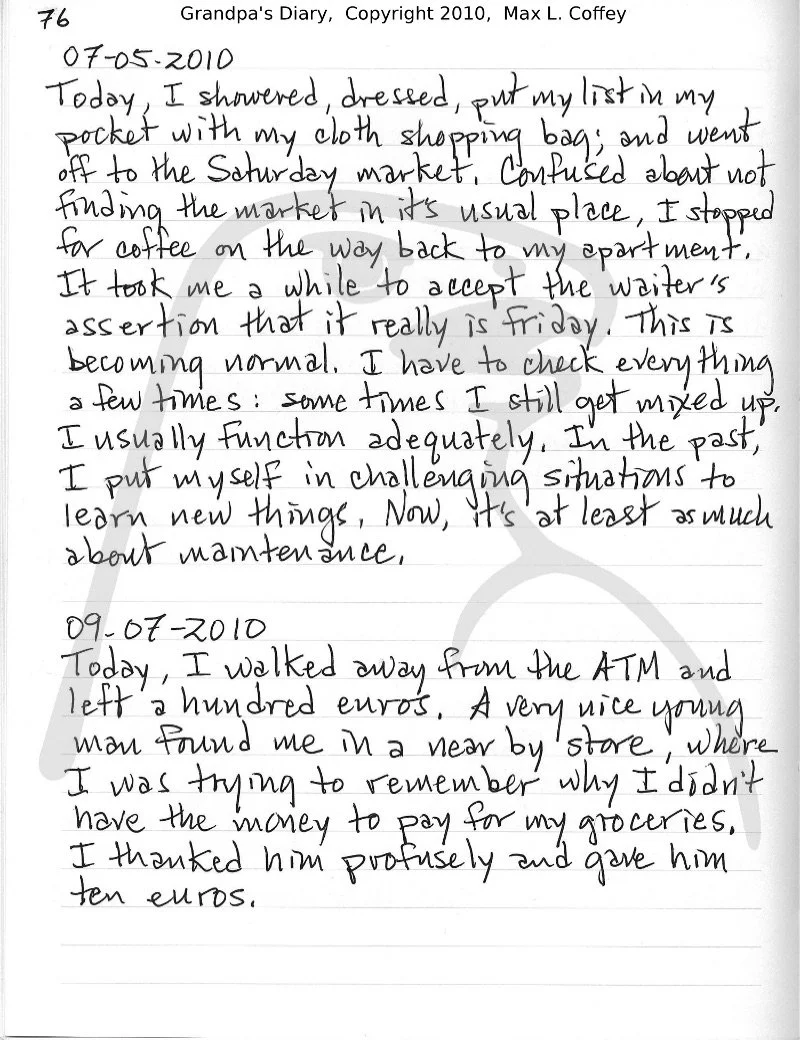 76
Grandpa's Diary, Copyright 2010, Max L. Coffey
07-05-2010
Today, I showered, dressed, put my list in my
pocket with my cloth shopping bag; and went
off to the Saturday market. Confused about not
finding the market in it's usual place, I stopped
for coffee on the way back to my apartment.
It took me a while to accept the waiter's
assertion that it really is friday. This is
becoming normal. I have to check everything
a few times: some times I still get mixed up.
I usually function adequately. In the past,
I put myself in challenging situations to
learn new things. Now, it's at least as much
about maintenance.
09-07-2010
Today, I walked away from the ATM and
left a hundred euros. A very nice young
man found me in a near by store, where
I was trying to remember why I didn't
have the money to pay for my groceries.
I thanked him profusely and gave him
ten euros.